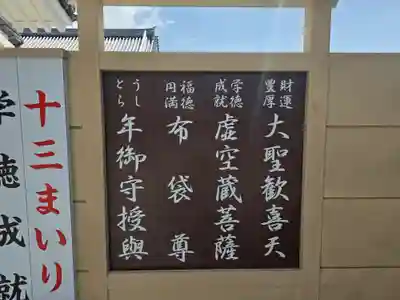 財運豊厚
大聖歓喜天
学徳成就
虚空蔵菩薩
福徳円満
布袋尊
うしとら
年御守授與
十三まいり
学徳成就